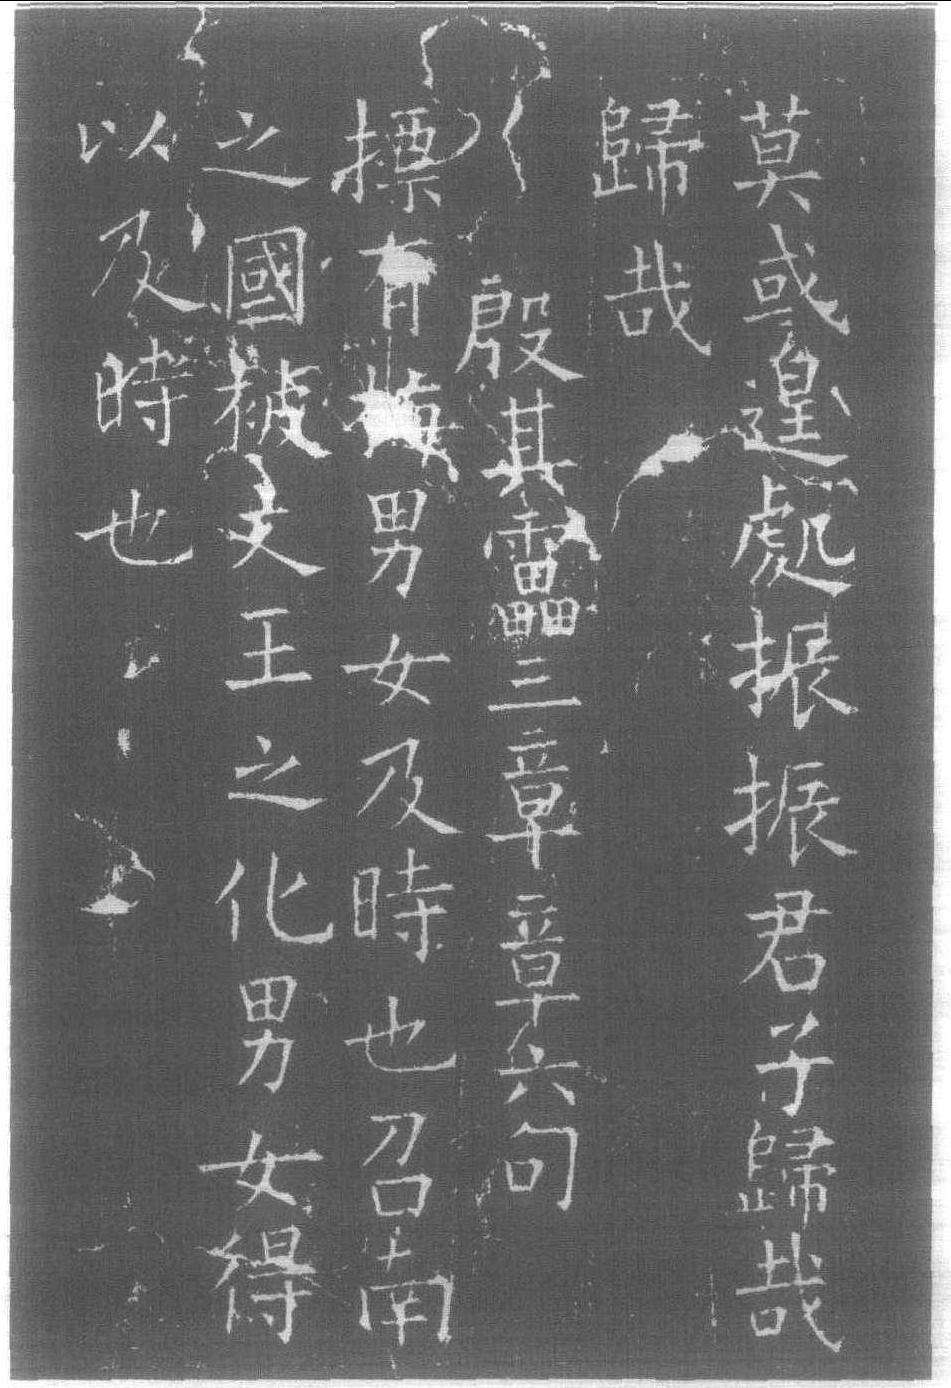 莫或遑處振振君子歸哉
歸哉
殷其靁三章章六句
摽有梅男女及時也召南
之國被文王之化男女得
以及時也